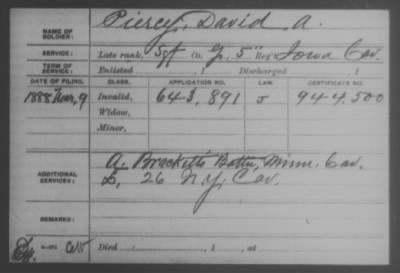 NAME OF SOLDIER: Piercy, David A.
SERVICE: Late rank, Sgt Co. G, 5" Reg't Iowa Cav.
TERM OF SERVICE: Enlisted , 1 Discharged , 1
DATE OF FILING. CLASS. APPLICATION NO. LAW. CERTIFICATE NO.
1888 Mar, 9 Invalid, 643,891 J 944,500
Widow,
Minor,
ADDITIONAL SERVICES: A. Brackett's Battn, Minn. Cav.
D, 26 N.Y. Cav.
REMARKS:
Died , 1 , at